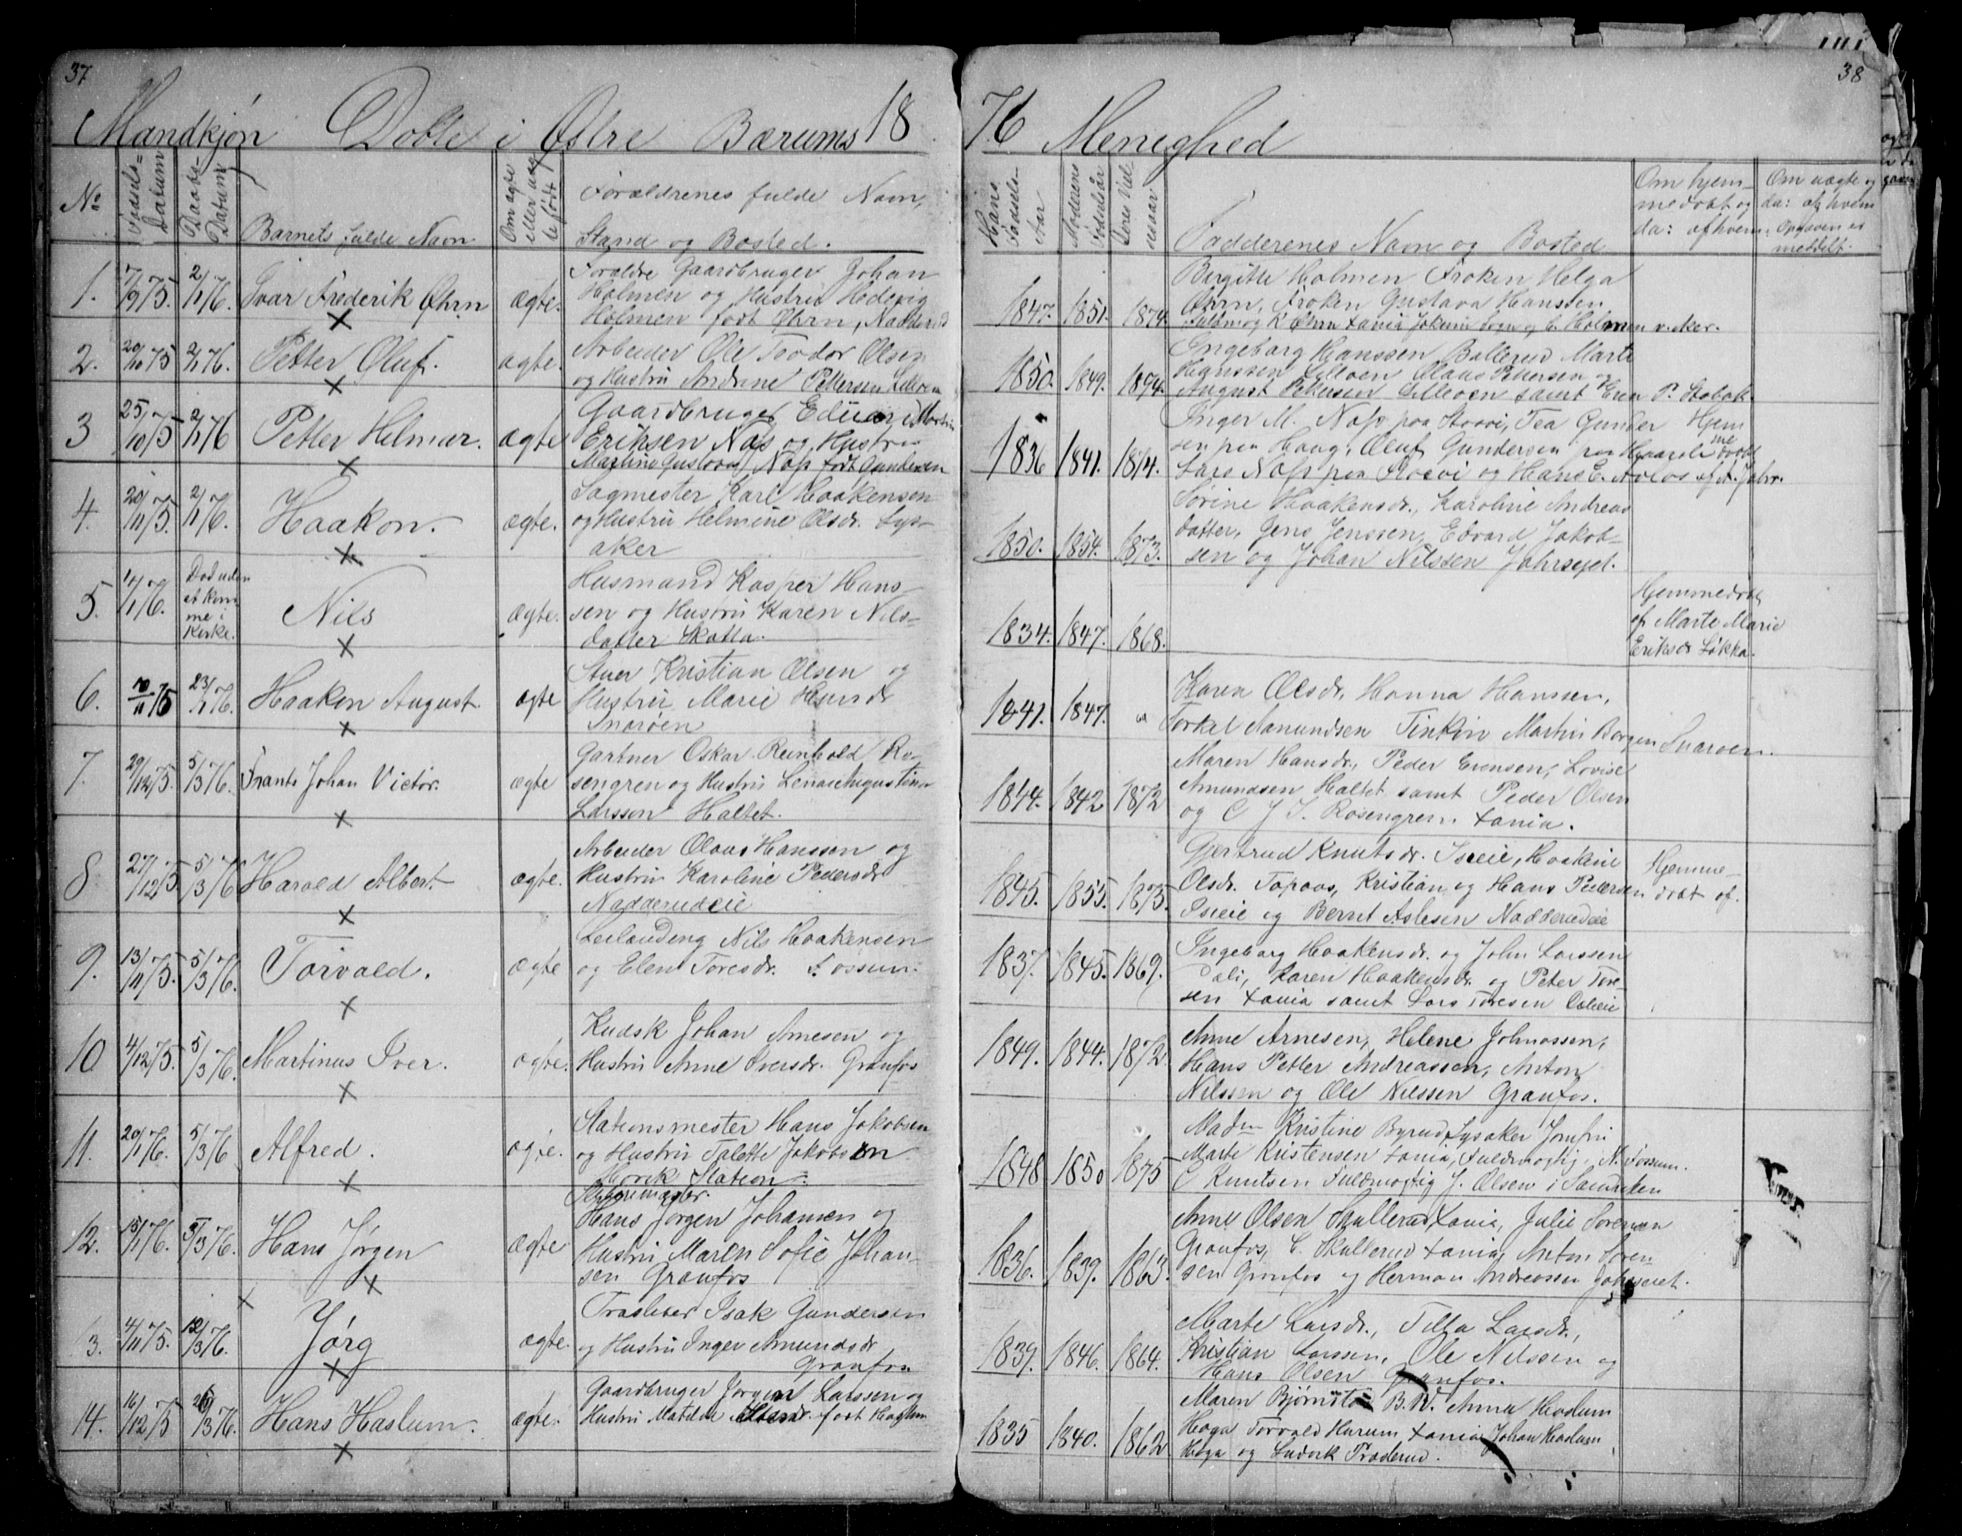 37
38
Mandkjøn Døbte i Østre Bærums 18 76 Menighed
No
Fødsels-Datum
Daabs-Datum
Barnets fulde Navn
Om ægte eller uægte født
Forældrenes fulde Navn,
Stand og Bosted.
Hans Fødsels-Aar
Moderens Fødselsår
Deres Viel-
Fadderenes Navn og Bosted
Om hjem-
medøbt og
da: af hvem.
Om uægte og
da: af hvem
Opgaven er
meddelt.
1. 7/9 75. 2/1 76. Ivar Frederik Øhrn ægte.
Forældre Gaardbruger Johan
Holmen og Hustru Hedevig
Holmen født Øhrn, Nadderud
1847. 1851. 1874.
Birgitte Holmen Frøken Helga
Øhrn, Frøken Gustava Hanssen
2. 20/10 75 2/1 76. Petter Oluf. ægte.
Arbeider Ole Teodor Olsen
og Hustru Andrine Pettersen Lilleøen
1850. 1849. 1874.
Ingeborg Hanssen Ballerud Marte
Hanssen Lilleøen Olaus Pettersen og
August Pettersen Lilleøen samt Even P. Stabæk
3 25/10 75 2/1 76 Petter Hilmar. ægte
Gaardbruger Edvard Martin
Eriksen Næs og Hustru
Martine Gustava Næss født Gundersen
1836 1841. 1874.
Inger M. Næss paa Stovi, Tea Gunder
sen paa Haug, Oluf Gundersen paa Haarsli
Lars Næss paa Stovi og Hans E. Aulos
Hjem
me
døbt
af A. Jahr.
4. 20/11 75. 2/1 76. Haakon. ægte.
Sagmester Karl Haakensen
og Hustru Helmine Olsdr. Lys-
aker
1850. 1854. 1873.
Sørine Haakensdr., Karoline Andreas
datter, Jens Jenssen, Edvard Jakob-
sen og Johan Nilssen Jahrsejet.
5. 1/1 76. Død uden
at kom
me i
Kirke.
Nils ægte.
Husmand Kasper Hans
sen og Hustru Karen Nils-
datter Skatta.
1834. 1847. 1868.
Hjemmedøbt
af Marte Marie
Eriksdr Løkka.
6. 10/11 75 23/1 76. Haakon August ægte
Stuer Kristian Olsen og
Hustru Marie Hansdr
Snarøen
1841. 1847. "
Karen Olsdr, Hanna Hanssen,
Torkel Aamundsen Tinkin Martin Borgen Snarøen.
7. 29/12 75. 5/3 76. Frants Johan Victor. ægte
Gartner Oskar Reinhold Ro-
sengren og Hustru Lena Augustine
Larsson Haltet.
1844. 1842 1872
Maren Hansdr., Peder Evensen, Lovise
Amundsen Haltet samt Peder Olsen
og C J J. Rosengren. Xania.
8 27/12 75 5/3 76 Harald Albert ægte.
Arbeider Olaus Hansson og
Hustru Karoline Pedersdr
Nadderudeie
1845. 1855. 1875.
Gjertrud Knutsdr. Iseeie, Haakine
Olsdr. Topaas, Kristian og Hans Pedersen
Iseeie og Bernt Aslesen Nadderudeie
Hjemme-
døbt af.
9. 13/11 75. 5/3 76. Torvald. ægte
Leilænding Nils Haakensen
og Elen Toresdr. Fossum.
1837. 1845. 1869.
Ingeborg Haakensdr. og John Larssen
Dæli, Karen Haakensdr. og Peter Tore-
sen Xania samt Lars Toresen Dælieie
10 4/12 75. 5/3 76. Martinus Iver. ægte.
Kudsk Johan Arnesen og
Hustru Anne Iversdr. Granfos
1849. 1844. 1872
Anne Arnesen, Helene Johnossen,
Hans Petter Andreassen, Anton
Nilssen og Ole Nilssen Granfos.
11. 20/1 76. 5/3 76 Alfred. ægte.
Stationsmester Hans Jakobsen
og Hustru Talette Jakobsen
Høvik Station
1848 1850 1875
Madm Kristine Byrud Lysaker Jomfru
Marte Kristensen Xania, Fuldmægtig. N. Fossum.
C Knutsen Fuldmægtig J. Olsen i Sandviken
12. 15/1 76. 5/3 76. Hans Jørgen ægte
Hans Jørgen Johansen og
Hustru Maren Sofie Johan-
sen Granfos
1836. 1839. 1863.
Anne Olsen Skullerud Xania, Julie Sørensen
Granfos, C. Skullerud Xania, Anton Søren-
sen Granfos og Herman Andreassen Jahrseiet.
13. 4/11 75. 12/3 76. Jørg ægte.
Træsliber Isak Gundersen
og Hustru Inger Amundsdr
Granfos
1839. 1846. 1864.
Marte Larsdr., Tilla Larsdr.,
Kristian Larssen, Ole Nilssen og
Hans Olsen Granfos.
14. 16/12 75 26/3 76. Hans Haslum. ægte.
Gaardbruger Jørgen Larssen og
Hustru Matilde født Haslum
1835 1840. 1862
Maren Bjørnstad B.W. Anna Haslum
Haga Torvald Harum Xania Johan Haslum
Haga og Ludvik Præderud.